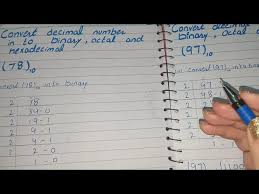 Convert decimal number
in to binary, octal and
hexadecimal
(78)₁₀
convert (78)₁₀ into binary
2 | 78
2 | 39-0
2 | 19-1
2 | 9-1
2 | 4-1
2 | 2-0
1-0
Convert dec
binary, octal a
(97)₁₀
convert (97)₁₀ into bin
2 | 97
2
2
2
2
2
(97)